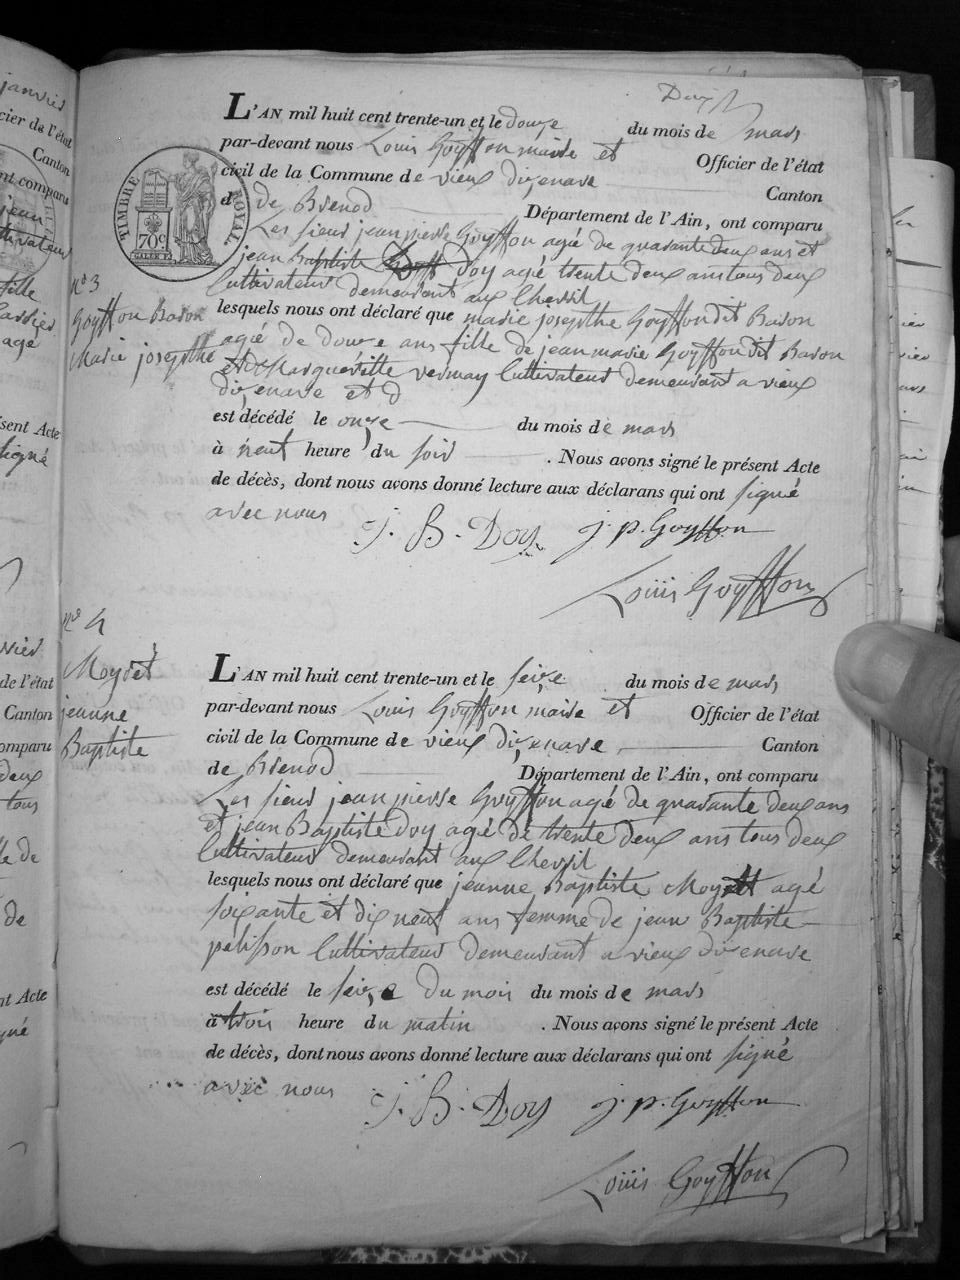 L'AN mil huit cent trente-un et le douze du mois de mars
par-devant nous Louis Goyffon maire et Officier de l'état
civil de la Commune de vieux dizenave Canton
d de Brenod Département de l'Ain, ont comparu
TIMBRE ROYAL
70c
Les sieurs jean pierre Goyffon agé de quarante deux ans et
jean Baptiste Doy agé trente deux ans tous deux
Cultivateurs demeurant aux
n° 3
Goyffon Baron
Marie josephte
lesquels nous ont déclaré que marie josephte Goyffon dit Baron
agé de douze ans fille de jean marie Goyffon dit Baron
et de Cultivateur demeurant a vieux
dizenave et d
est décédé le onze du mois de mars
à neuf heure du soir . Nous avons signé le présent Acte
de décès, dont nous avons donné lecture aux déclarans qui ont signé
avec nous
J. B. Doy j. p. Goyffon
Louis Goyffon
n° 4
Moyret
jeanne
Baptiste
L'AN mil huit cent trente-un et le seize du mois de mars
par-devant nous Louis Goyffon maire et Officier de l'état
civil de la Commune de vieux dizenave Canton
de Brenod Département de l'Ain, ont comparu
Les sieurs jean pierre Goyffon agé de quarante deux ans
et jean Baptiste Doy agé de trente deux ans tous deux
Cultivateurs demeurant aux
lesquels nous ont déclaré que jeanne Baptiste agé
soixante et dix neuf ans femme de jean Baptiste
pelisson Cultivateur demeurant a vieux dizenave
est décédé le seize du mois du mois de mars
à trois heure du matin . Nous avons signé le présent Acte
de décès, dont nous avons donné lecture aux déclarans qui ont signé
avec nous
J. B. Doy j. p. Goyffon
Louis Goyffon